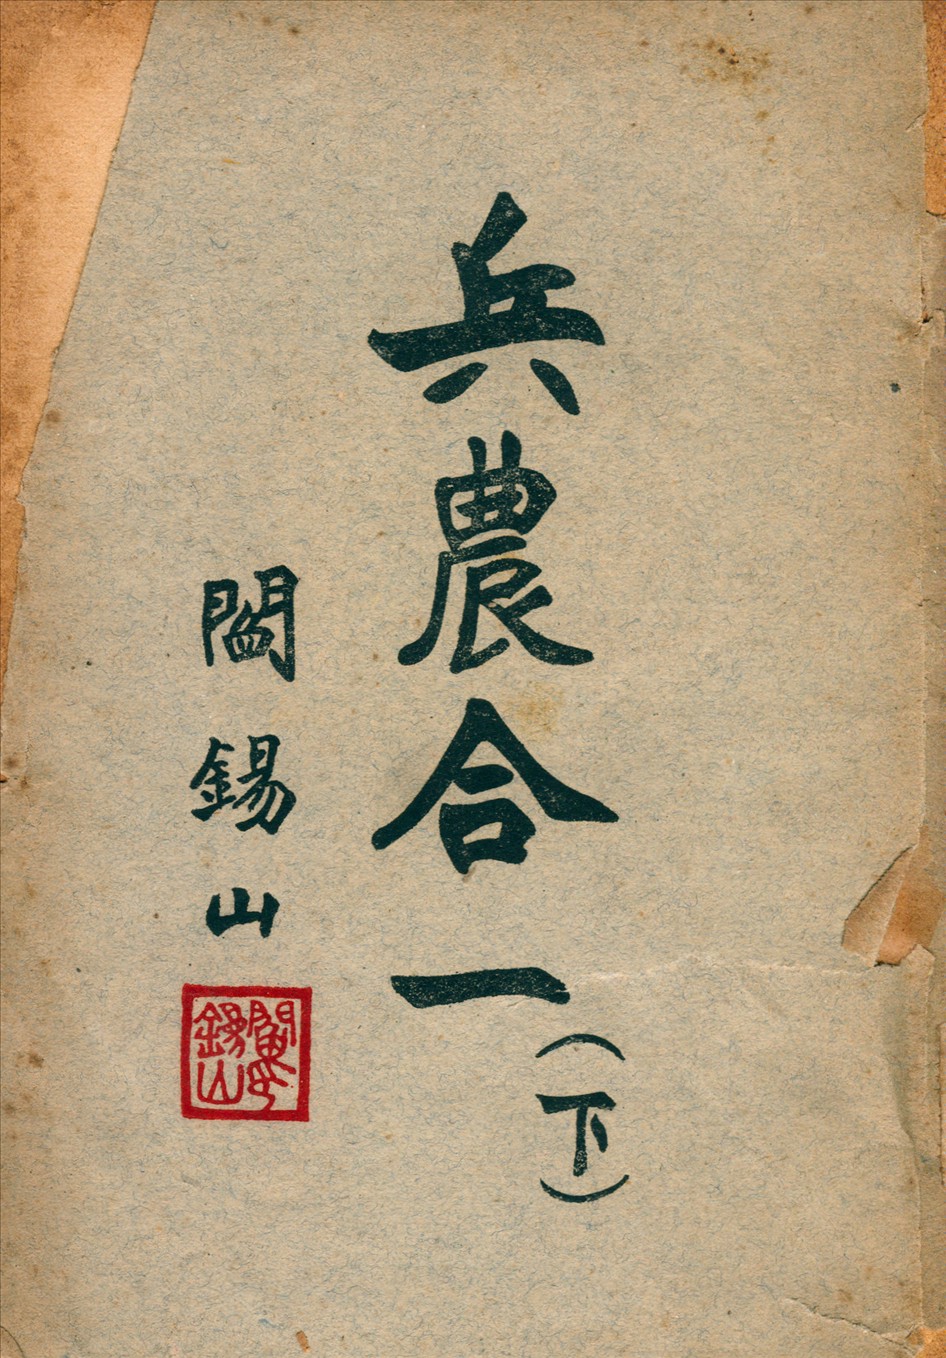 兵農合一
（下）
閻錫山
閻錫山